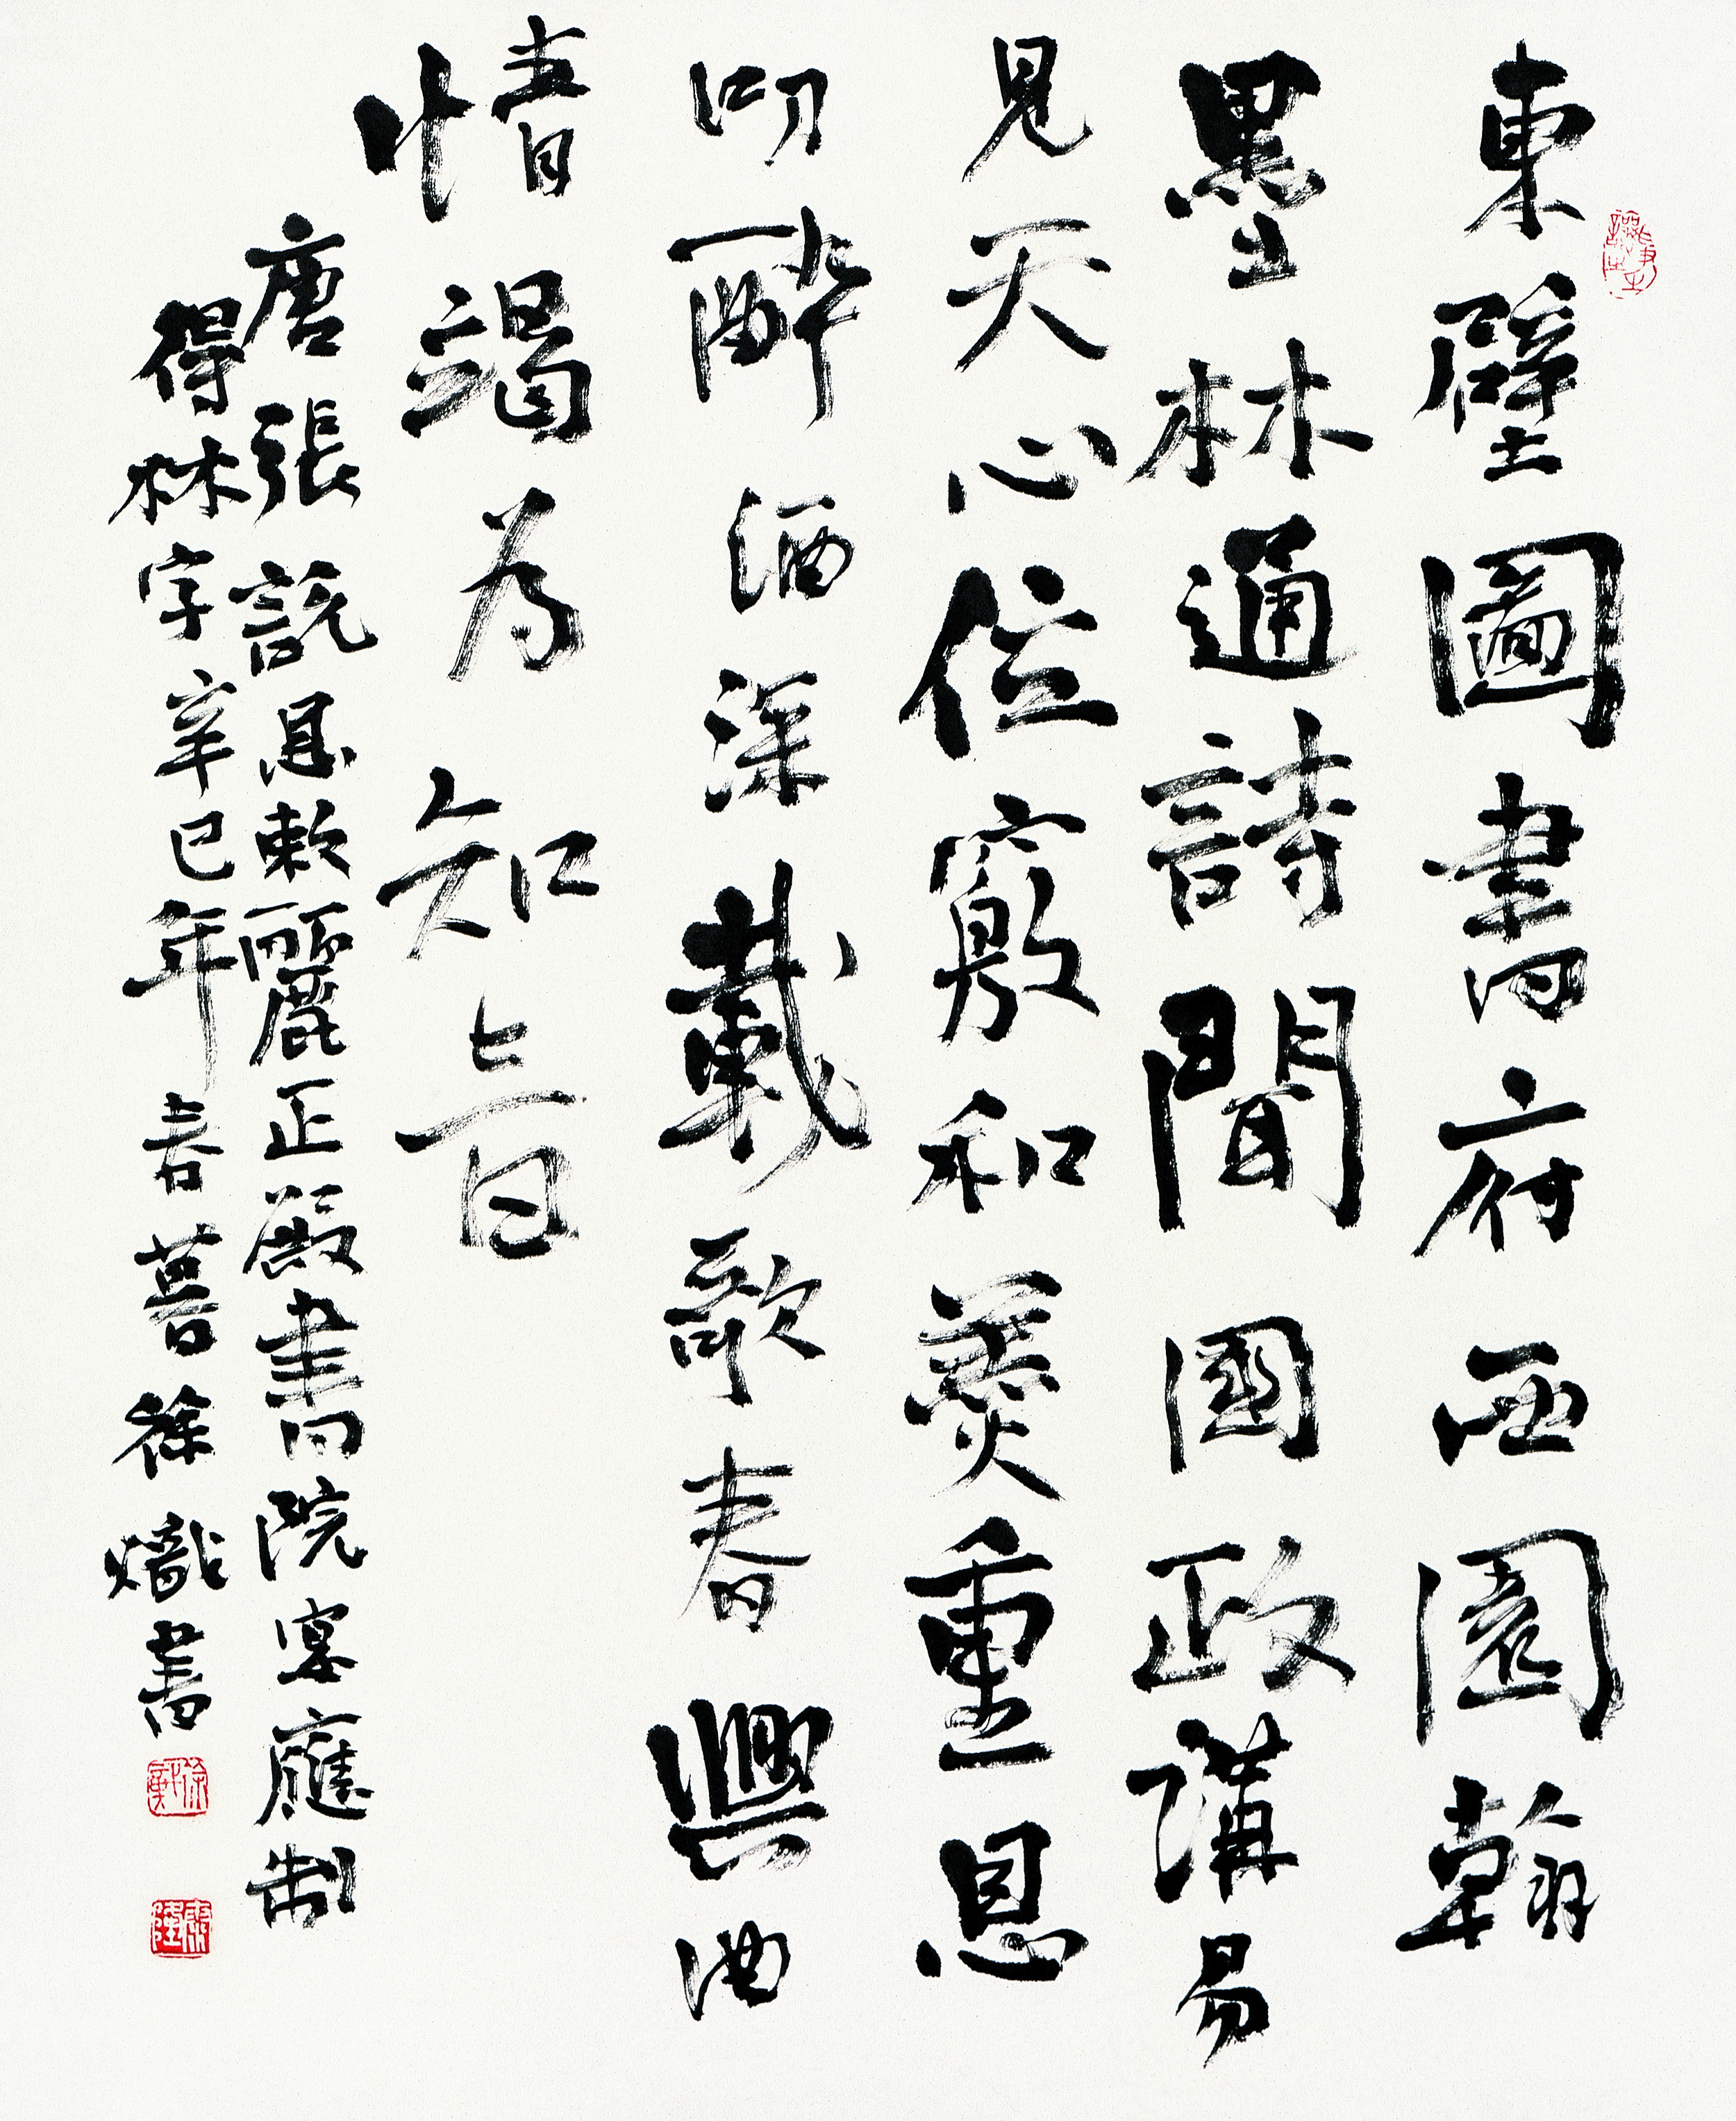 東壁圖書府西園翰
墨林通詩聞國政講易
見天心位竊和羹重恩
叨醉酒深載歌春興曲
情竭為知音
唐張説恩敕麗正殿書院宴應制
得林字辛巳年春暮徐熾書